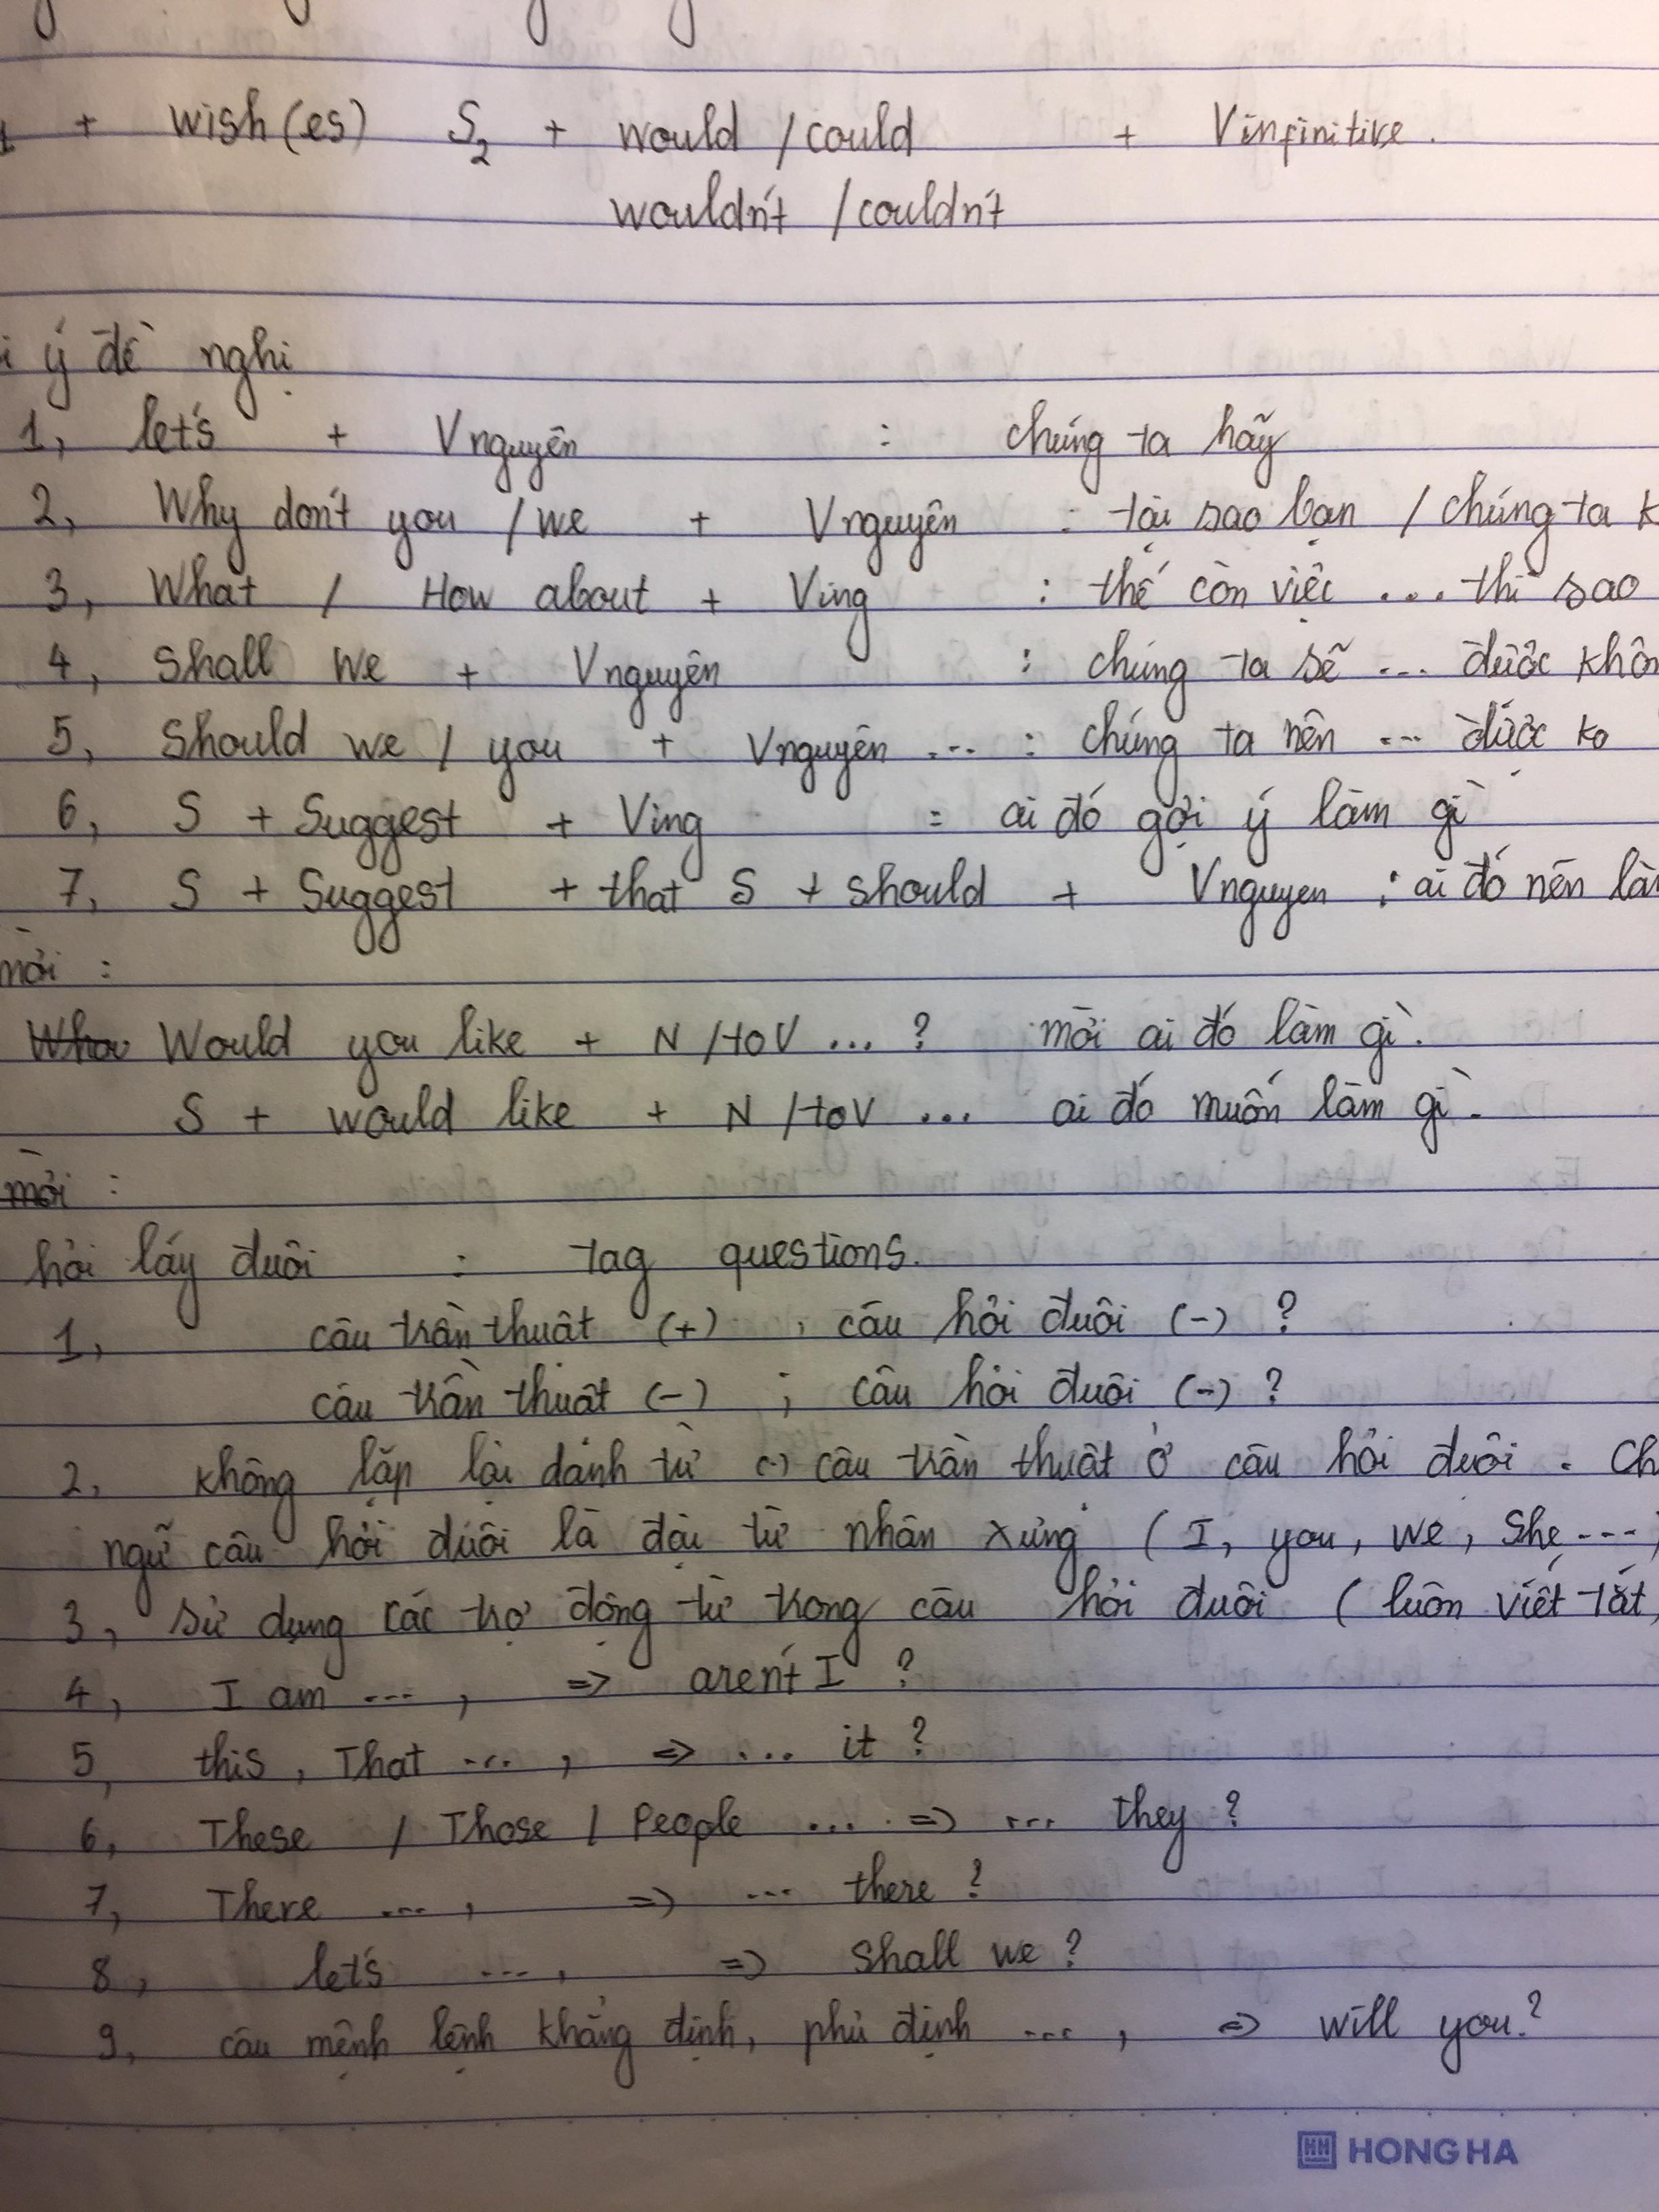 + wish(es) S2 + would / could + Vinfinitive.
wouldn't / couldn't
ý đề nghị
1, let's + Vnguyên : chúng ta hãy
2, Why don't you / we + Vnguyên : tại sao bạn / chúng ta k
3, What / How about + Ving : thế còn việc ... thì sao
4, Shall we + Vnguyên : chúng ta sẽ ... được khôn
5, Should we / you + Vnguyên ... : chúng ta nên ... được ko
6, S + Suggest + Ving : ai đó gợi ý làm gì
7, S + Suggest + that S + should + Vnguyen : ai đó nên làm
mời :
Would you like + N / to V ... ? mời ai đó làm gì.
S + would like + N / to V ... ai đó muốn làm gì.
mời :
hỏi láy đuôi : tag questions.
1, câu trần thuật (+) , câu hỏi đuôi (-) ?
câu trần thuật (-) ; câu hỏi đuôi (-) ?
2, không lặp lại danh từ (-) câu trần thuật ở câu hỏi đuôi . Ch
ngữ câu hỏi đuôi là đại từ nhân xưng ( I, you, we, She ... )
3, sử dụng các trợ động từ trong câu hỏi đuôi ( luôn viết tắt
4, I am ... , => aren't I ?
5, this, That ... , => ... it ?
6, These / Those / People ... => ... they ?
7, There ... , => ... there ?
8, let's ... , => Shall we ?
9, câu mệnh lệnh khẳng định, phủ định ... , => will you ?
HONG HA